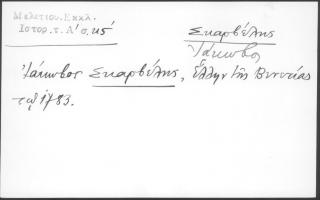 Μελετίου.Εκκλ.
Ιστορ.τ. Α' σ. κε'
Σκαρβέλης
Ἰάκωβος
Ἰάκωβος Σκαρβέλης, Ἕλλην τῆς Βενετίας
τῷ 1783.